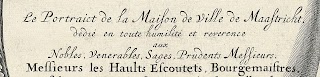 Le Portraict de la Maison de Ville de Maastricht,
dedié en toute humilité et reverence
aux
Nobles, Venerables, Sages, Prudents Messieurs,
Messieurs les Haults Escoutets, Bourgemaistres,